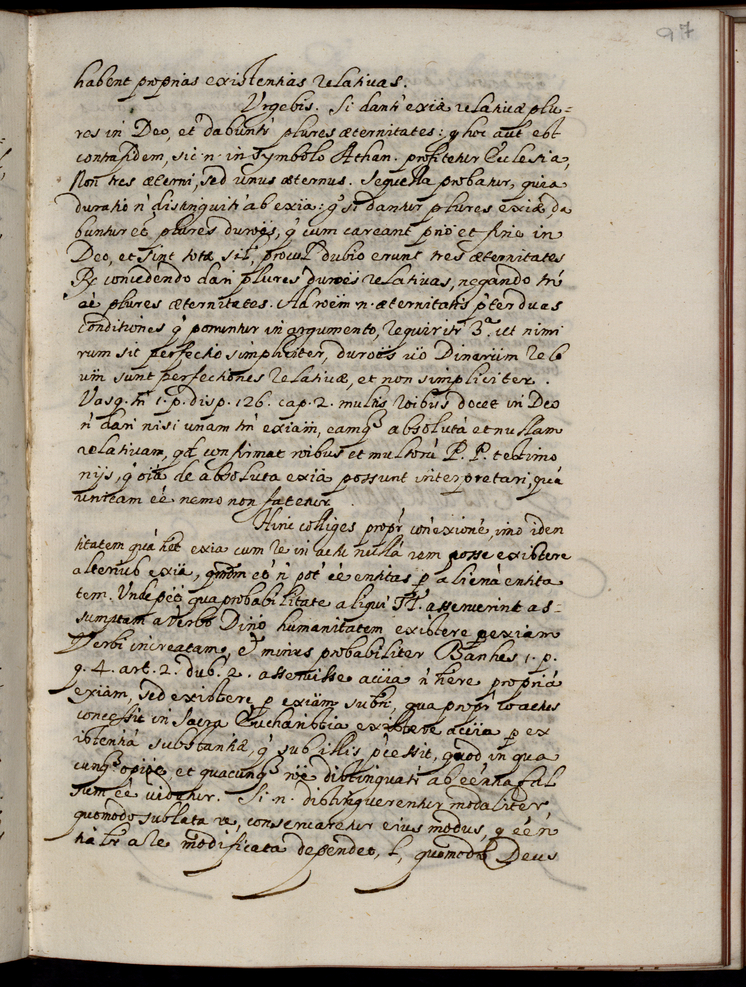 97
habent proprias existentias relativas.
Urgebis. Si dantr exiæ relativæ plu=
res in Deo, et dabuntr plures æternitates: hoc aut est
contra fidem, sic n. in symbolo Athan. profitetur Ecclesia,
Non tres æterni, sed unus æternus. Sequella probatur, quia
duratio n distinguitr ab exia: si dantur plures exiæ, da
buntur et plures duroes, q cum careant pno et fine in
Deo, et sint totæ sil, procul dubio erunt tres æternitates
Rx concedendo dari plures duroes relativas, negando tn
ee plures æternitates. Ad roem n. æternitatis pter duas
conditiones q ponuntur in argumento, requiritr 3.a ut nimi
rum sit perfectio simpliciter, duroes uo Dinarum relo
um sunt perfectiones relativæ, et non simpliciter.
Vasq. tn 1. p. disp. 126. cap. 2. multis roibus docet in Deo
n dari nisi unam tm exiam, eamq absoluta et nullam
relativam, qd confirmat roibus et multoru P. P. testimo
nijs, q oia de absoluta exia possunt interpretari, qua
unicam ee nemo non fatetur.
Hinc colliges propr conexione, imo iden
titatem qua het exia cum re in actu nulla rem posse existere
alterius exia, qmom et n pot ee entitas p aliena entita
tem. Unde qua probabilitate aliqui Tt. asseruerint as=
sumptam a Verbo Dino humanitatem existere p exiam
Verbi increatam, et minus probabiliter Banhes 1. p.
q. 4. art. 2. dub. 2. asseruisse accia n here propria
exiam, sed existere p exiam subti, qua propr coactus
concessit in sacra Eucharistia existere accia p ex
istentia substantiæ, q sub illis præcessit, quod in qua
cunq opioe, et quacunq roe distinguatr ab eentia fal
sum ee videtur. Si n. distinguerentur modaliter
quomodo sublata re, conservaretur eius modus, q ee n
a re modificata dependet, l, quomodo Deus